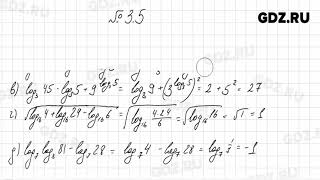 GDZ.RU
№ 3.5
в) log₃ 45 - log₃ 5 + 9^(log₃ 5) = log₃ 9 + (3^(log₃ 5))² = 2 + 5² = 27
г) √(log₁₆ 4 + log₁₆ 24 - log₁₆ 6) = √(log₁₆ (4·24/6)) = √(log₁₆ 16) = √1 = 1
д) log₇ log₃ 81 - log₇ 28 = log₇ 4 - log₇ 28 = log₇ 7⁻¹ = -1
GDZ.RU